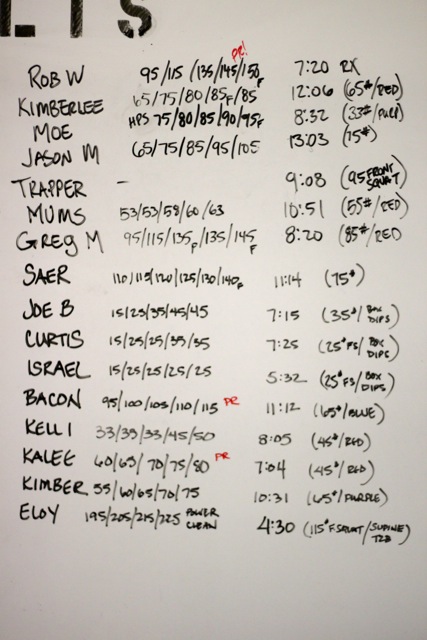 ETS
PR!
ROB W 95/115 (135/145/150F 7:20 RX
KIMBERLEE 65/75/80/85F/85 12:06 (65#/RED)
MOE HPS 75/80/85/90/95F 8:32 (33#/PURP)
JASON M 65/75/85/95/105 13:03 (75#)
TRAPPER - 9:08 (95 FRONT SQUAT)
MUMS 53/53/58/60/63 10:51 (55#/RED)
GREG M 95/115/135F/135/145F 8:20 (85#/RED
SAER 110/115/120/125/130/140F 11:14 (75#)
JOE B 15/25/35/45/45 7:15 (35#/BOX DIPS)
CURTIS 15/25/25/35/35 7:25 (25#FS/BOX DIPS)
ISRAEL 15/25/25/25/25 5:32 (25#FS/BOX DIPS)
BACON 95/100/105/110/115 PR 11:12 (65#/BLUE)
KELLI 33/35/33/45/50 8:05 (45#/RED)
KALEE 60/65/70/75/80 PR 7:04 (45#/RED)
KIMBER 55/60/65/70/75 10:31 (65#/PURPLE)
ELOY 195/205/215/225 POWER CLEAN 4:30 (115#F SQUAT/SUPINE T2B)